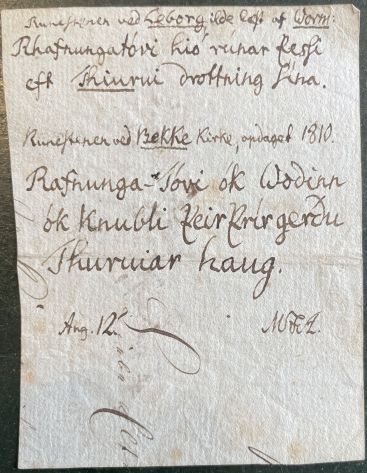 Runestenen ved Leborg ilde læst af Worm:
Rhafnungatóvi hió rúnar þessi
eft Thiurvi drottning sina.
Runestenen ved Bekke Kirke, opdaget 1810.
Rafnunga-Tóvi ók Wodinn
ók Knubli þeir þrír gerðu
Thurviar haug.
Aug. 12